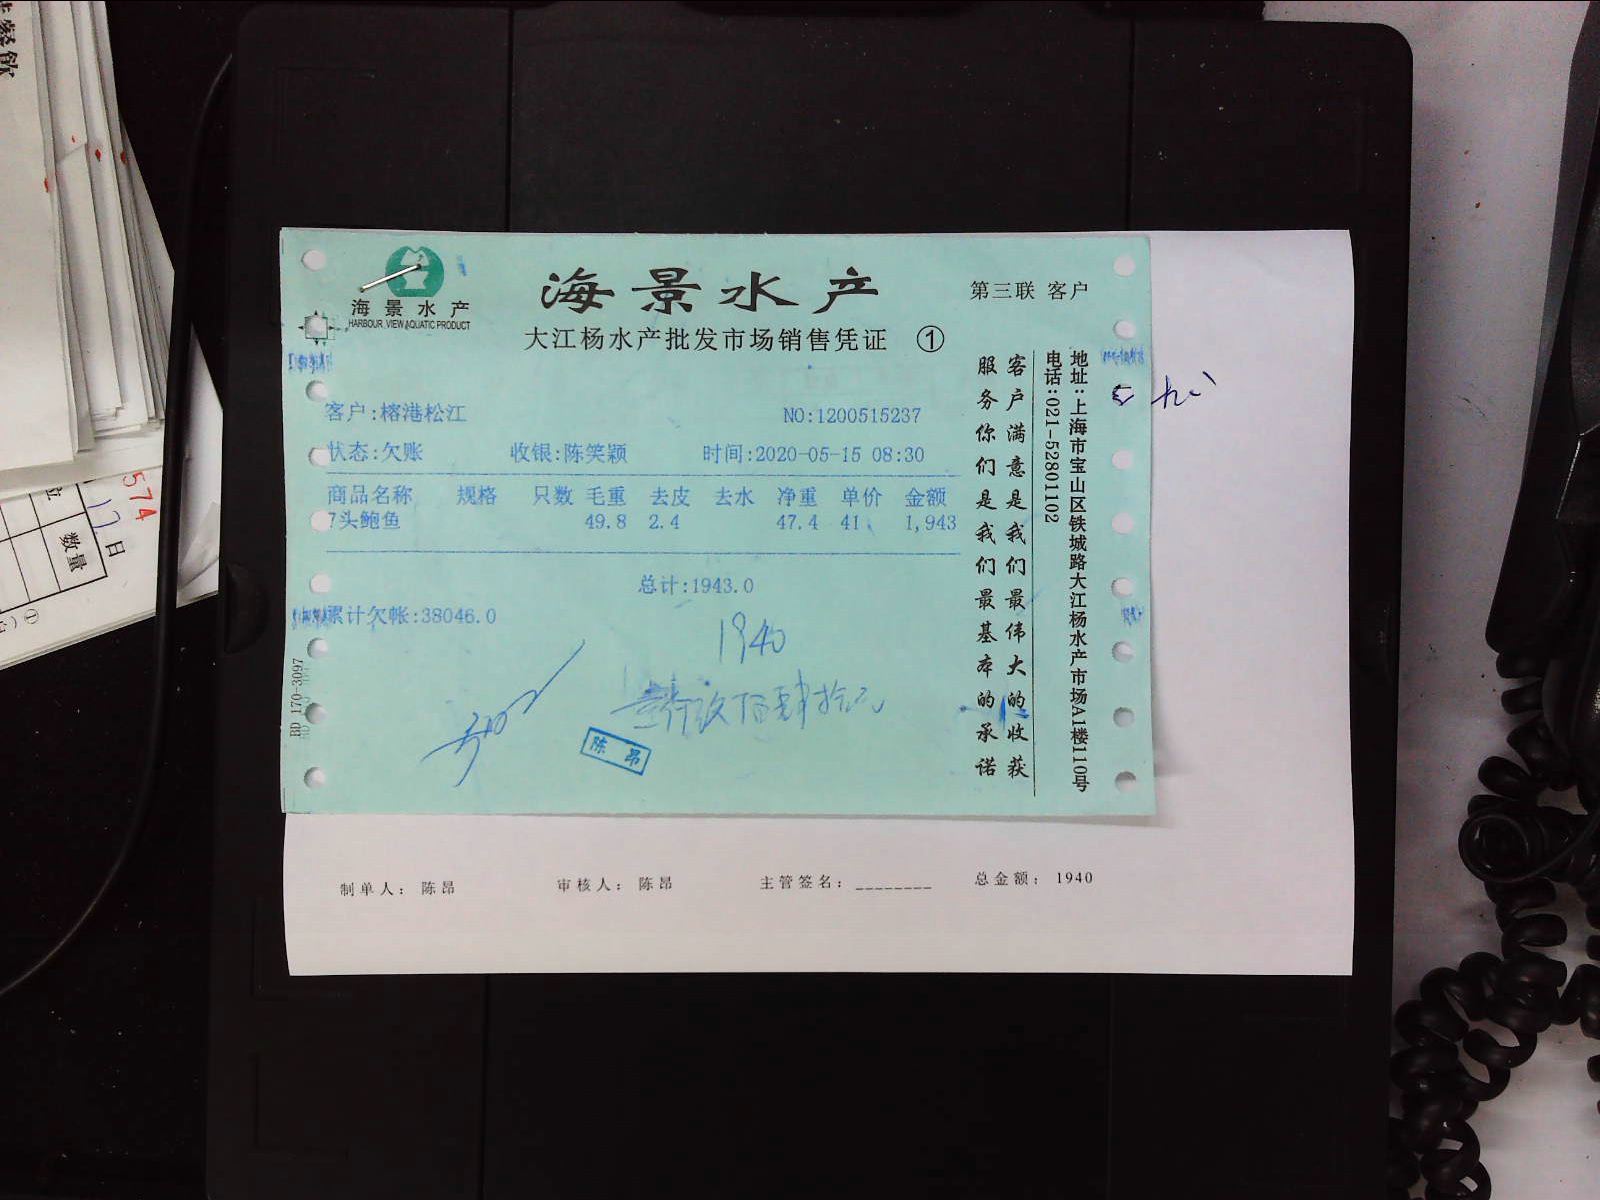 海景水产
HARBOUR VIEW AQUATIC PRODUCT
海景水产
第三联 客户
大江杨水产批发市场销售凭证 ①
客户:榕港松江
NO:1200515237
状态:欠账 收银:陈笑颖 时间:2020-05-15 08:30
商品名称 规格 只数 毛重 去皮 去水 净重 单价 金额
7头鲍鱼 49.8 2.4 47.4 41 1,943
总计:1943.0
累计欠帐:38046.0
1940
壹仟玖佰肆拾元
陈昂
BD 170-3097
客户满意是我们最伟大的收获
服务你们是我们最基本的承诺
地址:上海市宝山区铁城路大江杨水产市场A1楼110号
电话:021-52801102
制单人: 陈昂 审核人: 陈昂 主管签名: ________ 总金额: 1940
574
17日
数量